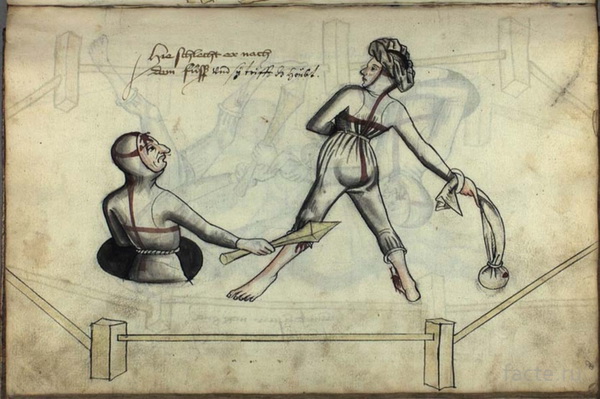 Hie schlecht er nach
dem füss und h trifft dz houbt.
facte.ru